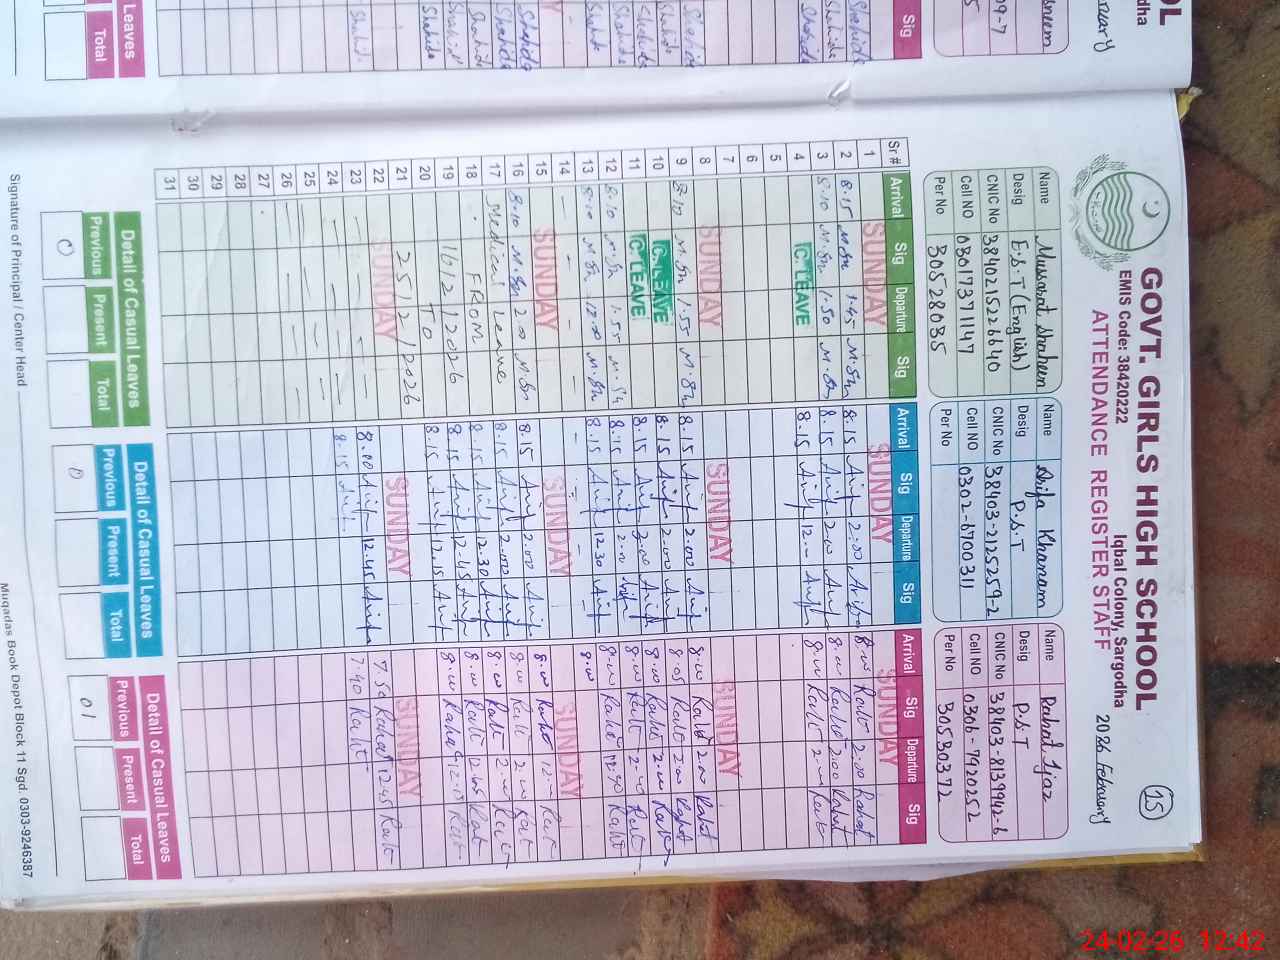 GOVT. GIRLS HIGH SCHOOL
EMIS Code: 38420222 Iqbal Colony, Sargodha
ATTENDANCE REGISTER STAFF 2026 February
15
Name Mussarat shaheen
Desig E.S.T (English)
CNIC No 3840215226640
Cell NO 03017371147
Per No 30528035
Name Arifa Khanam
Desig P.S.T
CNIC No 38403-2125259-2
Cell NO 0302-6700311
Per No
Name Rahat Ijaz
Desig P.S.T
CNIC No 38403-8139942-6
Cell NO 0306-7920252
Per No 30530372
Sr# Arrival Sig Departure Sig Arrival Sig Departure Sig Arrival Sig Departure Sig
1 SUNDAY SUNDAY SUNDAY
2 8.15 M.Sn 1.45 M.Sn 8.15 Arifa 2.00 Arifa 8.00 Rahat 2.00 Rahat
3 8.10 M.Sn 1.50 M.Sn 8.15 Arifa 2.00 Arifa 8.00 Rahat 2.00 Rahat
4 C.LEAVE 8.15 Arifa 12.00 Arifa 8.00 Rahat
5
6
7
8 SUNDAY SUNDAY SUNDAY
9 8.10 M.Sn 1.55 M.Sn 8.15 Arifa 2.00 Arifa 8.00 Rahat 2.00 Rahat
10 C.LEAVE 8.15 Arifa 2.00 Arifa 8.05 Rahat 2.00 Rahat
11 C.LEAVE 8.15 Arifa 2.00 Arifa 8.00 Rahat 2.00 Rahat
12 8.10 M.Sn 1.55 M.Sn 8.15 Arifa 2.00 Arifa 8.00 Rahat
13 8.10 M.Sn 12.00 M.Sn 8.15 Arifa 12.30 Arifa 8.00 Rahat
14
15 SUNDAY SUNDAY SUNDAY
16 8.10 M.Sn 2.00 M.Sn 8.15 Arifa 2.00 Arifa 8.00 Rahat
17 Medical Leave 8.15 Arifa 2.00 Arifa 8.00 Rahat 2.00 Rahat
18 FROM 8.15 Arifa 12.30 Arifa 8.00 Rahat
19 16/2/2026 8.15 Arifa 12.45 Arifa 8.00 Rahat
20 TO 8.15 Arifa 12.15 Arifa 8.00 Rahat 12.15 Rahat
21 25/2/2026
22 SUNDAY SUNDAY SUNDAY
23 8.00 Arifa 12.45 Arifa 7.50 Rahat 12.45 Rahat
24 8.15 Arifa 7.40 Rahat
25
26
27
28
29
30
31
Detail of Casual Leaves
Previous Present Total
0
Detail of Casual Leaves
Previous Present Total
0
Detail of Casual Leaves
Previous Present Total
01
Signature of Principal / Center Head
Muqadas Book Depot Block 11 Sgd. 0303-9246387
Sig
Leaves
Total
24-02-26 12:42